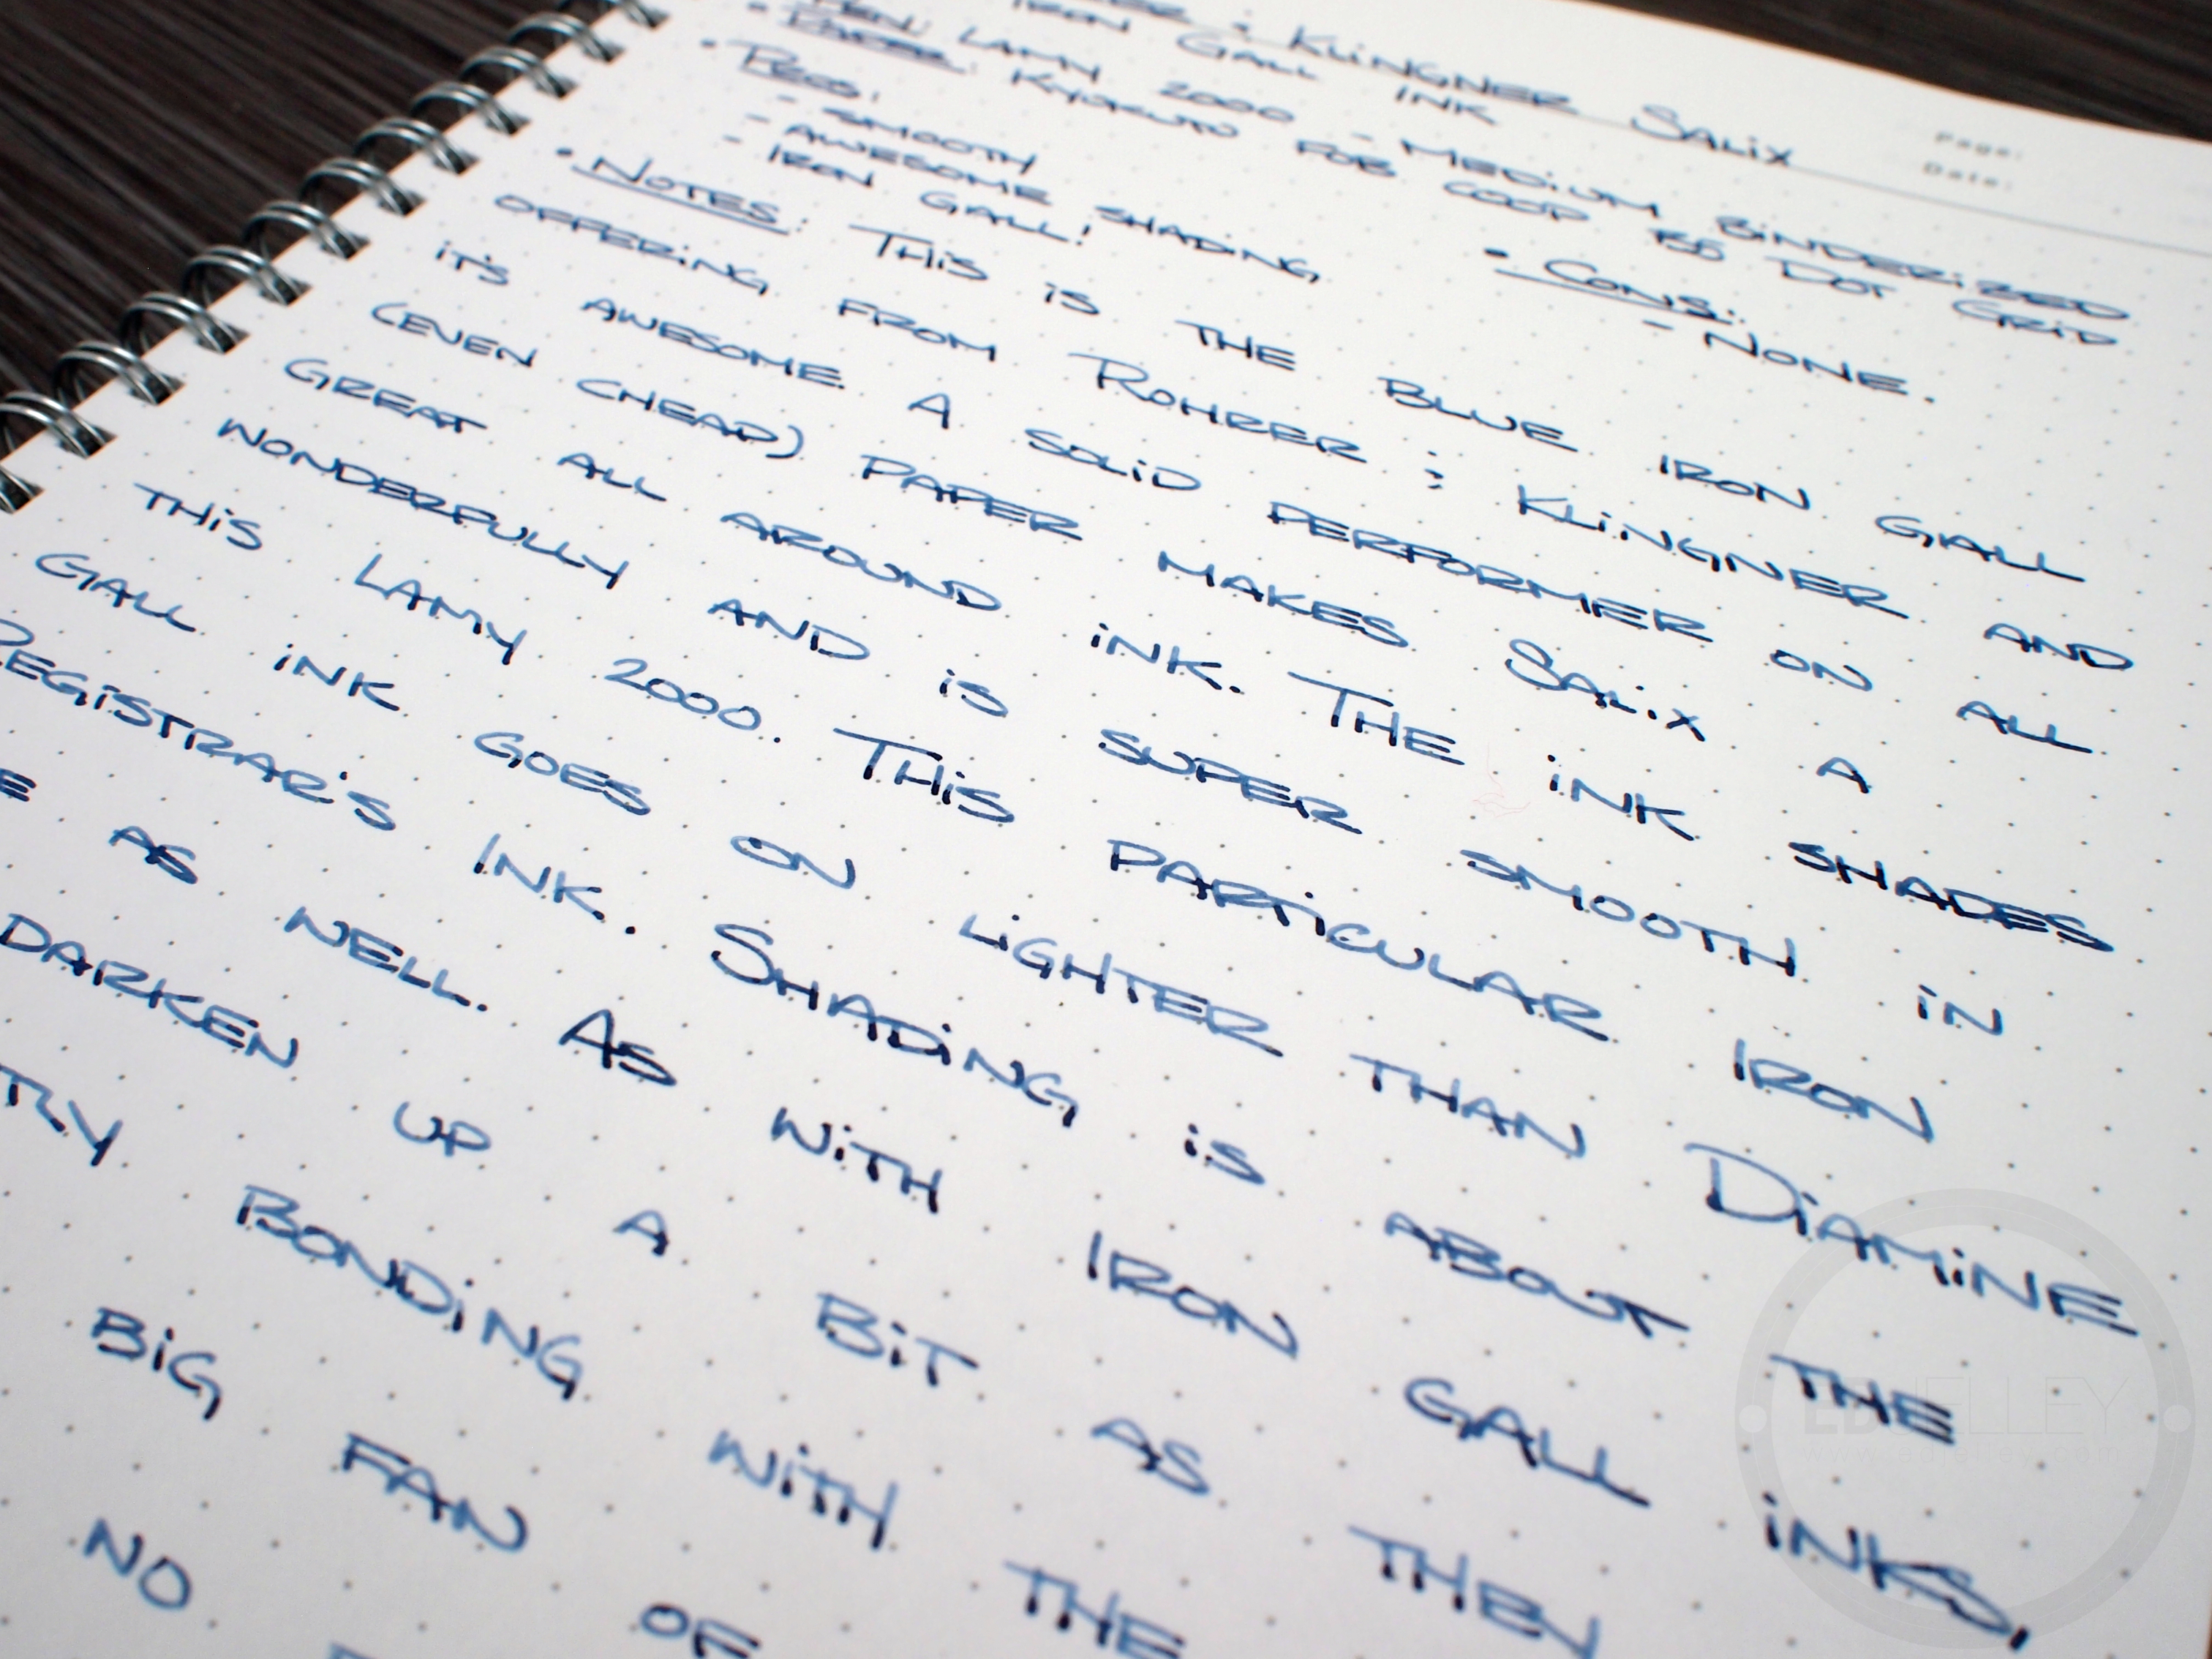 KLINGNER SALIX
IRON GALL INK
PAGE:
DATE:
• PEN: LAMY 2000 - MEDIUM BINDERIZED
• PAPER: KYOKUTO FOB COOP B5 DOT GRID
• PROS:
- SMOOTH
- AWESOME SHADING
- IRON GALL!
• CONS:
- NONE.
• NOTES: THIS IS THE BLUE IRON GALL
OFFERING FROM ROHRER & KLINGNER AND
IT'S AWESOME. A SOLID PERFORMER ON ALL
(EVEN CHEAP) PAPER MAKES SALIX A
GREAT ALL AROUND INK. THE INK SHADES
WONDERFULLY AND IS SUPER SMOOTH IN
THIS LAMY 2000. THIS PARTICULAR IRON
GALL INK GOES ON LIGHTER THAN DIAMINE
REGISTRAR'S INK. SHADING IS ABOUT THE
AS WELL. AS WITH IRON GALL INKS,
DARKEN UP A BIT AS THEY
TRY BONDING WITH THE
BIG FAN OF
NO
ED JELLEY